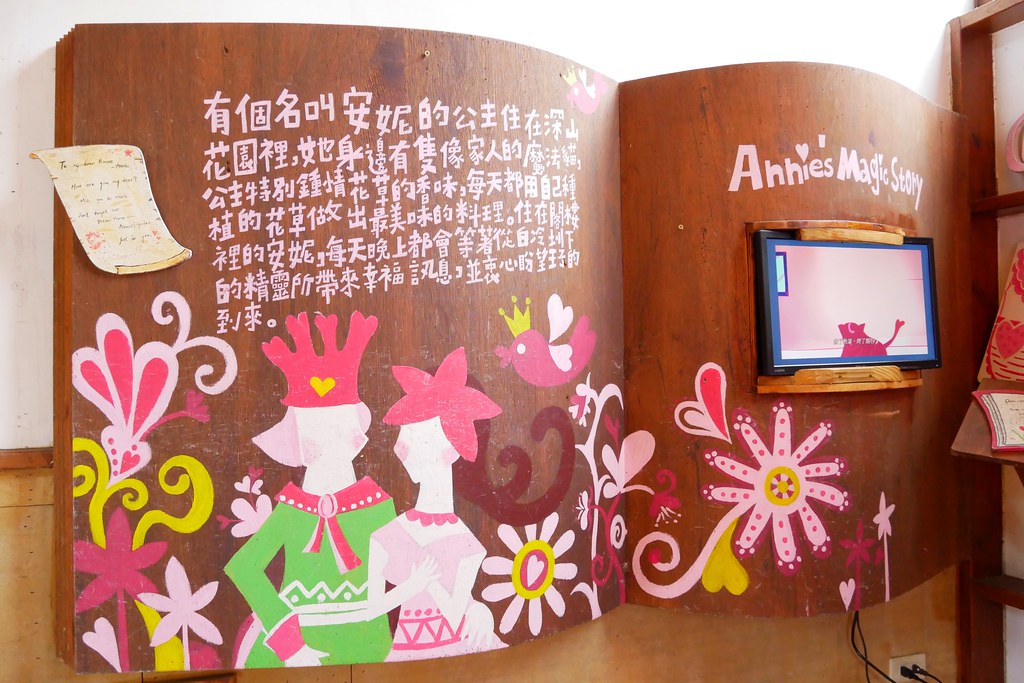 有個名叫安妮的公主住在深山
花園裡,她身邊有隻像家人的魔法貓,
公主特別鍾情花草的香味,每天都用自己種
植的花草做出最美味的料理。住在閣樓
裡的安妮,每天晚上都會等著從白冷圳下
的精靈所帶來幸福訊息,並衷心盼望王子的
到來。
Annie's Magic Story
To my dear
How are you my dear?